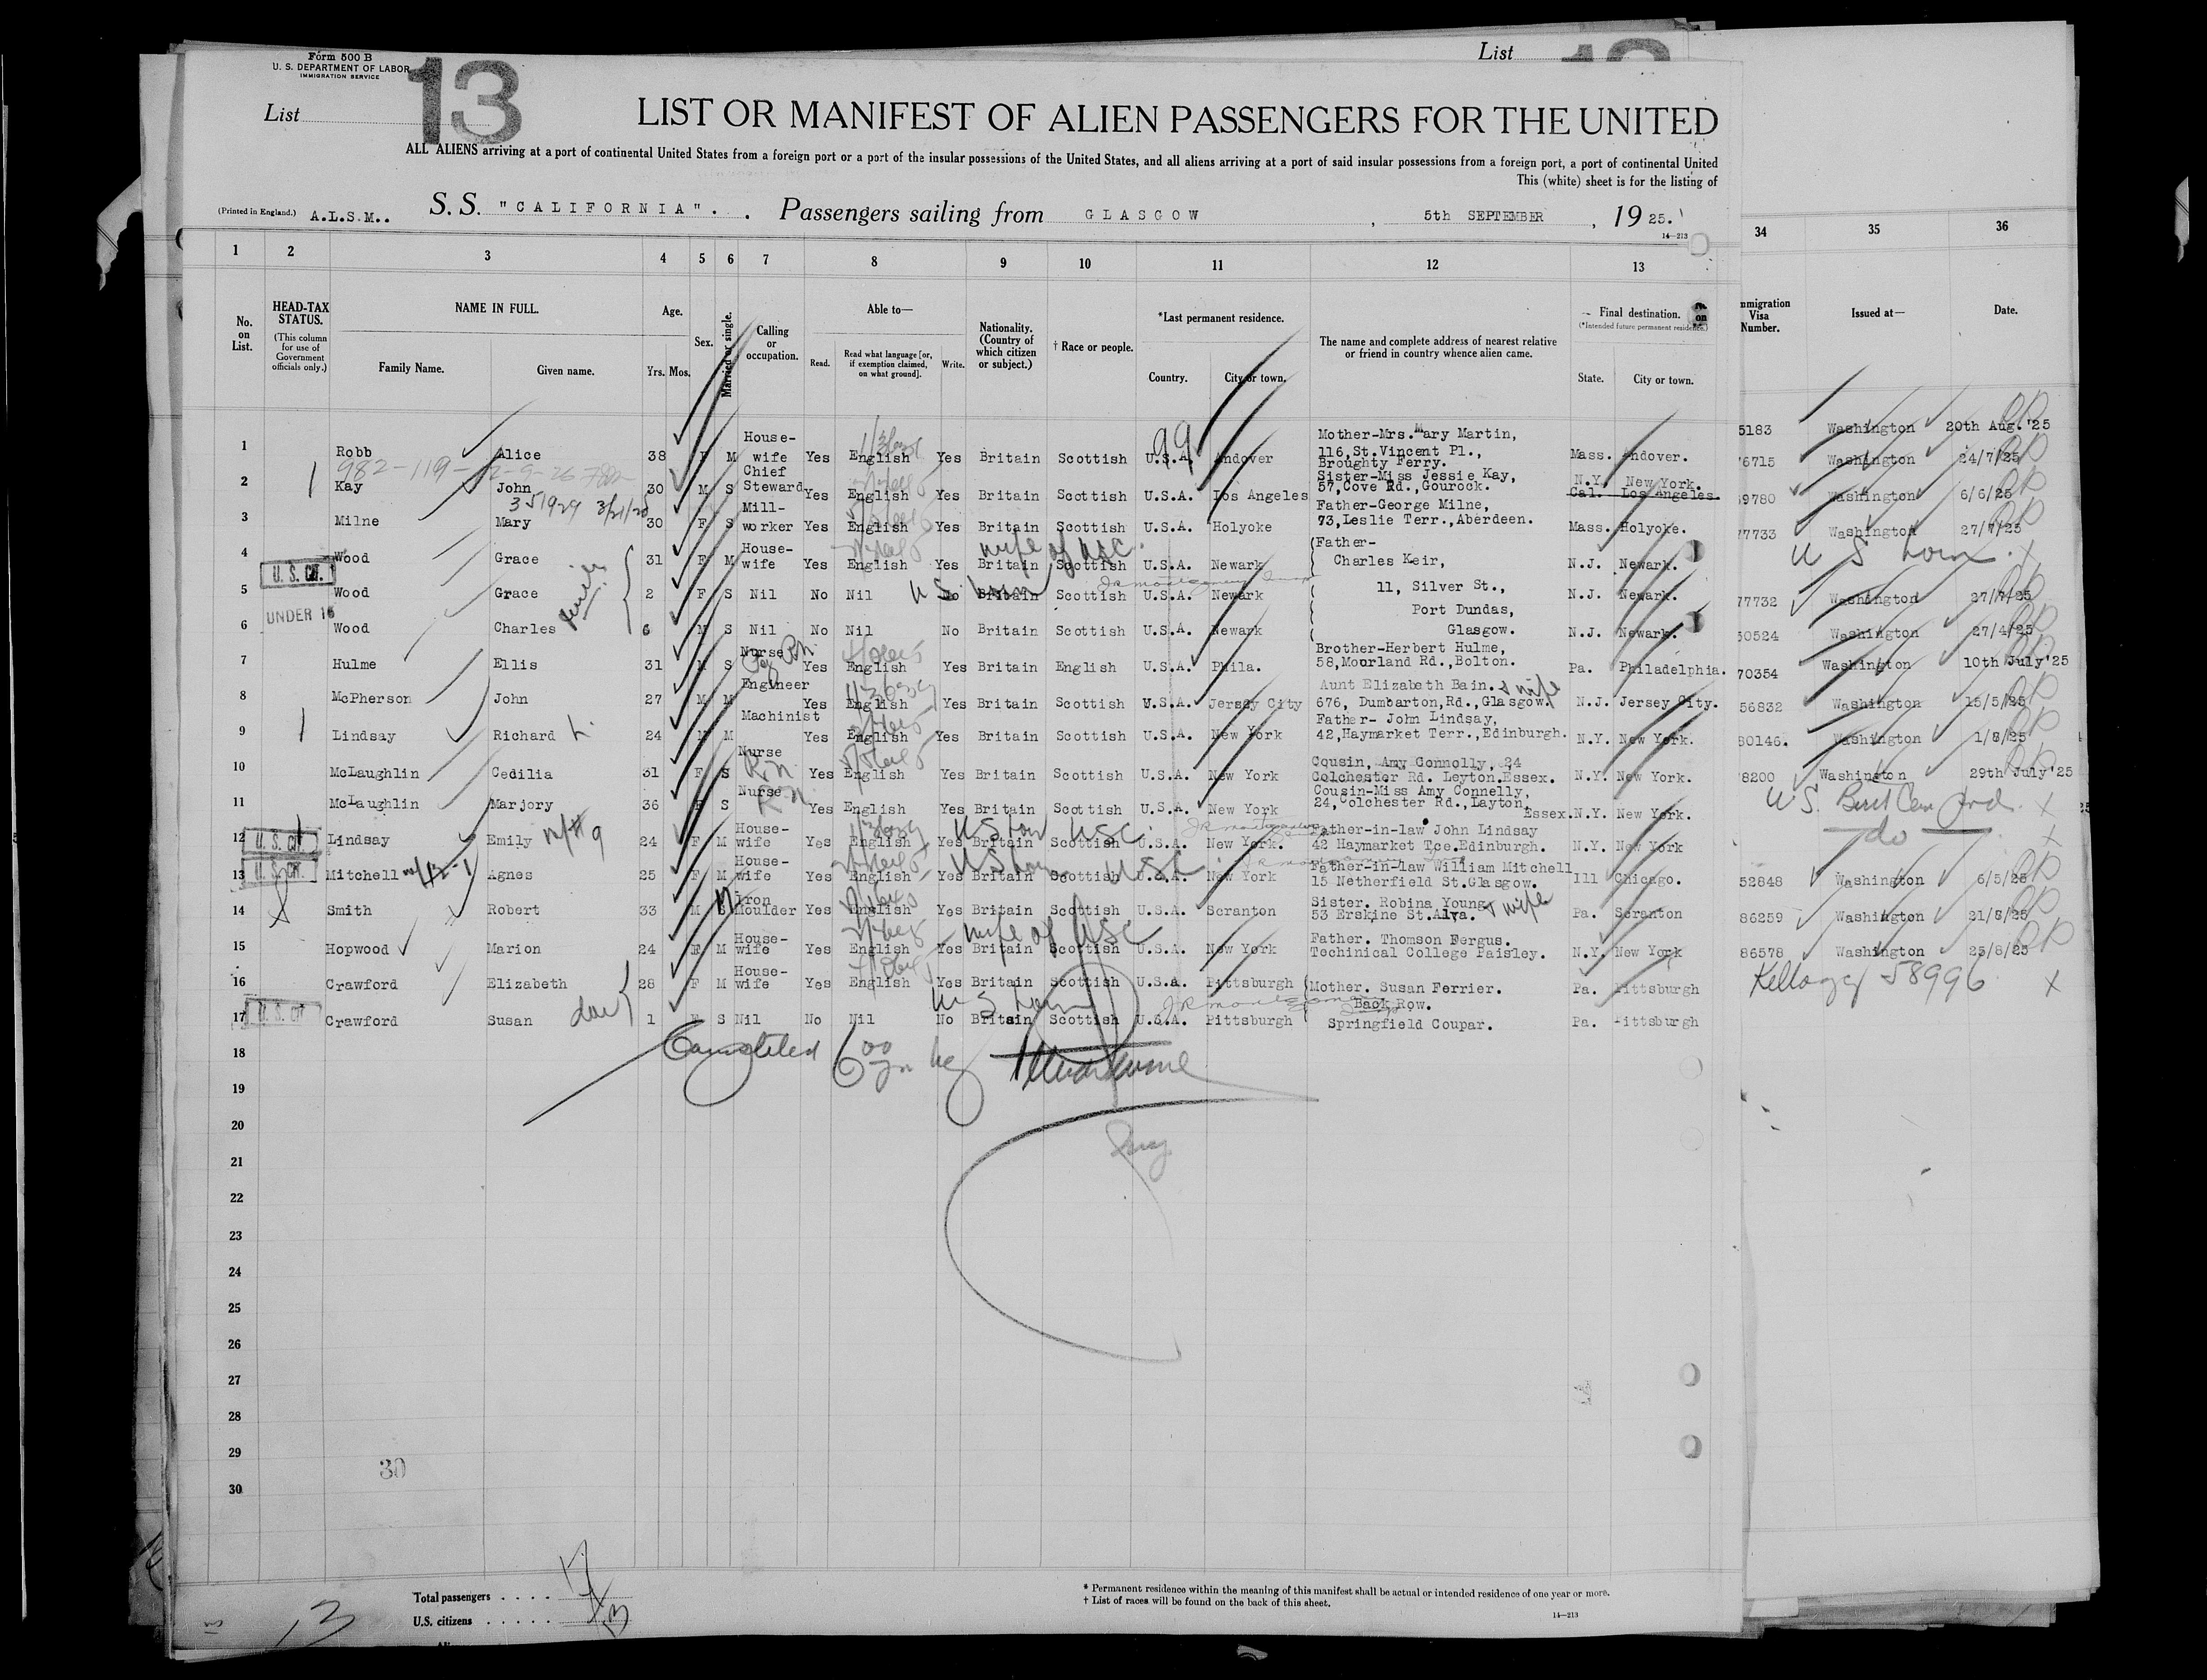 Form 500 B
U. S. DEPARTMENT OF LABOR
IMMIGRATION SERVICE
List
13
List
LIST OR MANIFEST OF ALIEN PASSENGERS FOR THE UNITED
ALL ALIENS arriving at a port of continental United States from a foreign port or a port of the insular possessions of the United States, and all aliens arriving at a port of said insular possessions from a foreign port, a port of continental United
This (white) sheet is for the listing of
(Printed in England.) A.L.S.M.. S. S. "CALIFORNIA". Passengers sailing from GLASGOW, 5th SEPTEMBER, 1925.
14—213
1 2 3 4 5 6 7 8 9 10 11 12 13 34 35 36
No. on List.
HEAD-TAX STATUS.
(This column for use of Government officials only.)
NAME IN FULL.
Family Name. Given name.
Age.
Yrs. Mos.
Sex.
Married or single.
Calling or occupation.
Able to—
Read. Read what language [or, if exemption claimed, on what ground]. Write.
Nationality. (Country of which citizen or subject.)
† Race or people.
*Last permanent residence.
Country. City or town.
The name and complete address of nearest relative or friend in country whence alien came.
Final destination.
(*Intended future permanent residence.)
State. City or town.
Immigration Visa Number.
Issued at—
Date.
1 Robb Alice 38 F M House-wife Yes English Yes Britain Scottish U.S.A. Andover Mother-Mrs. Mary Martin, 116,St.Vincent Pl., Broughty Ferry. Mass. Andover. 5183 Washington 20th Aug.'25
2 Kay John 30 M S Chief Steward Yes English Yes Britain Scottish U.S.A. Los Angeles Sister-Miss Jessie Kay, 57,Cove Rd.,Gourock. N.Y. New York. Cal. Los Angeles. 76715 Washington 24/7/25
351929 3/21/28
3 Milne Mary 30 F S Mill-worker Yes English Yes Britain Scottish U.S.A. Holyoke Father-George Milne, 73,Leslie Terr.,Aberdeen. Mass. Holyoke. 59780 Washington 6/6/25
4 Wood Grace 31 F M House-wife Yes English Yes Britain Scottish U.S.A. Newark Father- Charles Keir, N.J. Newark. 77733 Washington 27/7/25
wife of USC.
5 U. S. CIT. Wood Grace 2 F S Nil No Nil No Britain Scottish U.S.A. Newark 11, Silver St., N.J. Newark. U S born. X
US born
6 UNDER 16 Wood Charles 6 M S Nil No Nil No Britain Scottish U.S.A. Newark Port Dundas, Glasgow. N.J. Newark. 77732 Washington 27/7/25
7 Hulme Ellis 31 M S Nurse Yes English Yes Britain English U.S.A. Phila. Brother-Herbert Hulme, 58,Moorland Rd.,Bolton. Pa. Philadelphia. 50524 Washington 27/4/25
8 McPherson John 27 M M Engineer Yes English Yes Britain Scottish U.S.A. Jersey City Aunt Elizabeth Bain. & wife 676, Dumbarton,Rd.,Glasgow. N.J. Jersey City. 70354 Washington 10th July'25
9 Lindsay Richard 24 M M Machinist Yes English Yes Britain Scottish U.S.A. New York Father- John Lindsay, 42,Haymarket Terr.,Edinburgh. N.Y. New York. 56832 Washington 15/5/25
10 McLaughlin Cedilia 31 F S Nurse R.N. Yes English Yes Britain Scottish U.S.A. New York Cousin, Amy Connolly, 24 Colchester Rd. Leyton.Essex. N.Y. New York. 80146. Washington 1/8/25
11 McLaughlin Marjory 36 F S Nurse R.N. Yes English Yes Britain Scottish U.S.A. New York Cousin-Miss Amy Connelly, 24,Colchester Rd.,Layton, Essex. N.Y. New York. 78200 Washington 29th July'25
12 U. S. CIT. Lindsay Emily 24 F M House-wife Yes English Yes Britain Scottish U.S.A. New York. Father-in-law John Lindsay 42 Haymarket Tce.Edinburgh. N.Y. New York
US born USC.
13 U. S. CIT. Mitchell Agnes 25 F M House-wife Yes English Yes Britain Scottish U.S.A. New York Father-in-law William Mitchell 15 Netherfield St.Glasgow. Ill Chicago. do X
US born USC.
14 Smith Robert 33 M S Iron Moulder Yes English Yes Britain Scottish U.S.A. Scranton Sister. Robina Young. & wife 53 Erskine St.Alva. Pa. Scranton 52848 Washington 6/5/25
15 Hopwood Marion 24 F M House-wife Yes English Yes Britain Scottish U.S.A. New York Father. Thomson Fergus. Techinical College Paisley. N.Y. New York 86259 Washington 21/8/25
wife of USC
16 Crawford Elizabeth 28 F M House-wife Yes English Yes Britain Scottish U.S.A. Pittsburgh Mother. Susan Ferrier. Pa. Pittsburgh 86578 Washington 25/8/25
17 U. S. CIT Crawford Susan 1 F S Nil No Nil No Britain Scottish U.S.A. Pittsburgh Back Row. Springfield Coupar. Pa. Pittsburgh Kellogg 58996 X
US born
18
19
20
21
22
23
24
25
26
27
28
29
30
30
Total passengers . . . . 17
U.S. citizens . . . . .
13
* Permanent residence within the meaning of this manifest shall be actual or intended residence of one year or more.
† List of races will be found on the back of this sheet.
14—213